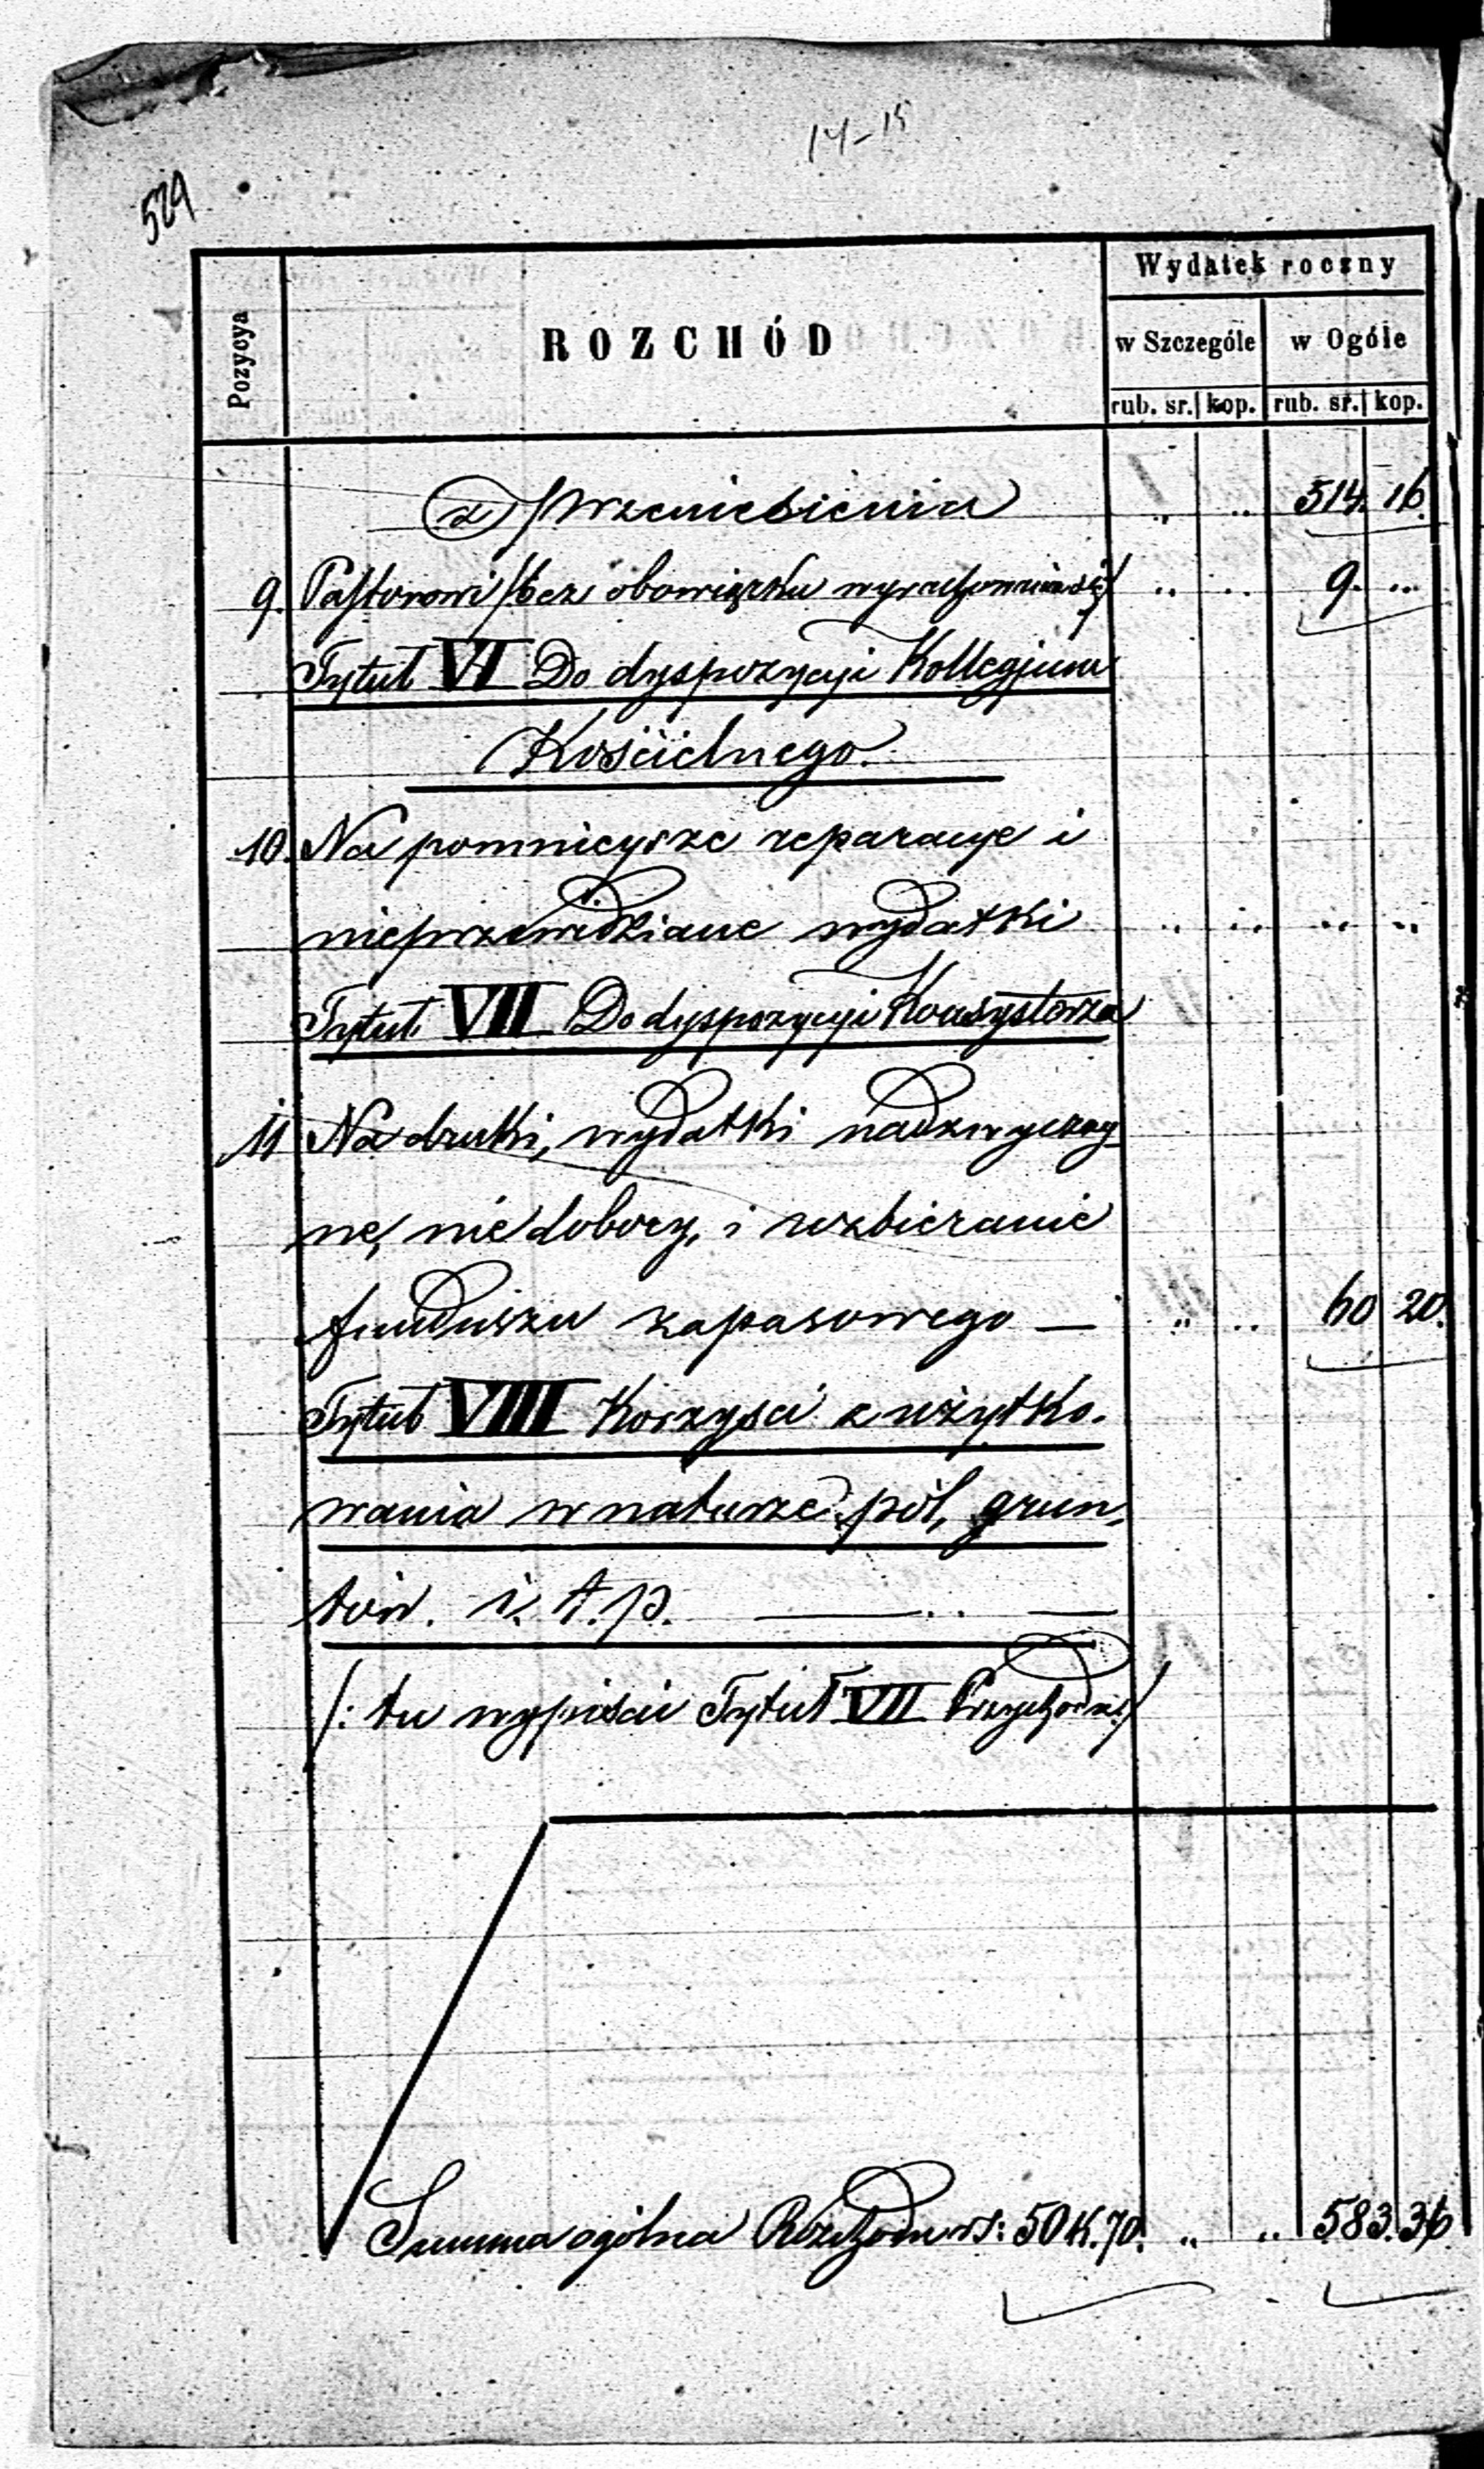 14-15
529
Pozycya
ROZCHÓD
Wydatek roczny
w Szczególe w Ogóle
rub. sr. kop. rub. sr. kop.
z Przeniesienia " " 514. 16.
9. Pastorowi /bez obowiązku wyrachowania się/ " " 9. "
Tytuł VI Do dyspozycyi Kollegjum
Kościelnego.
10. Na pomnieysze reparacye i
nieprzewidziane wydatki " " " "
Tytuł VII Do dyspozycyi Konsystorza
11 Na druki, wydatki nadzwyczay
ne, niedobory, i uzbieranie
funduszu zapasowego — " " 60 20.
Tytuł VIII Korzyści z użytko-
wania w naturze pól, grun-
tów. i. t. p. — " —
/: tu wypisać Tytuł VII Przychodu :/
Summa ogólna Rozchodu rs: 50 K. 70. " " 583. 36